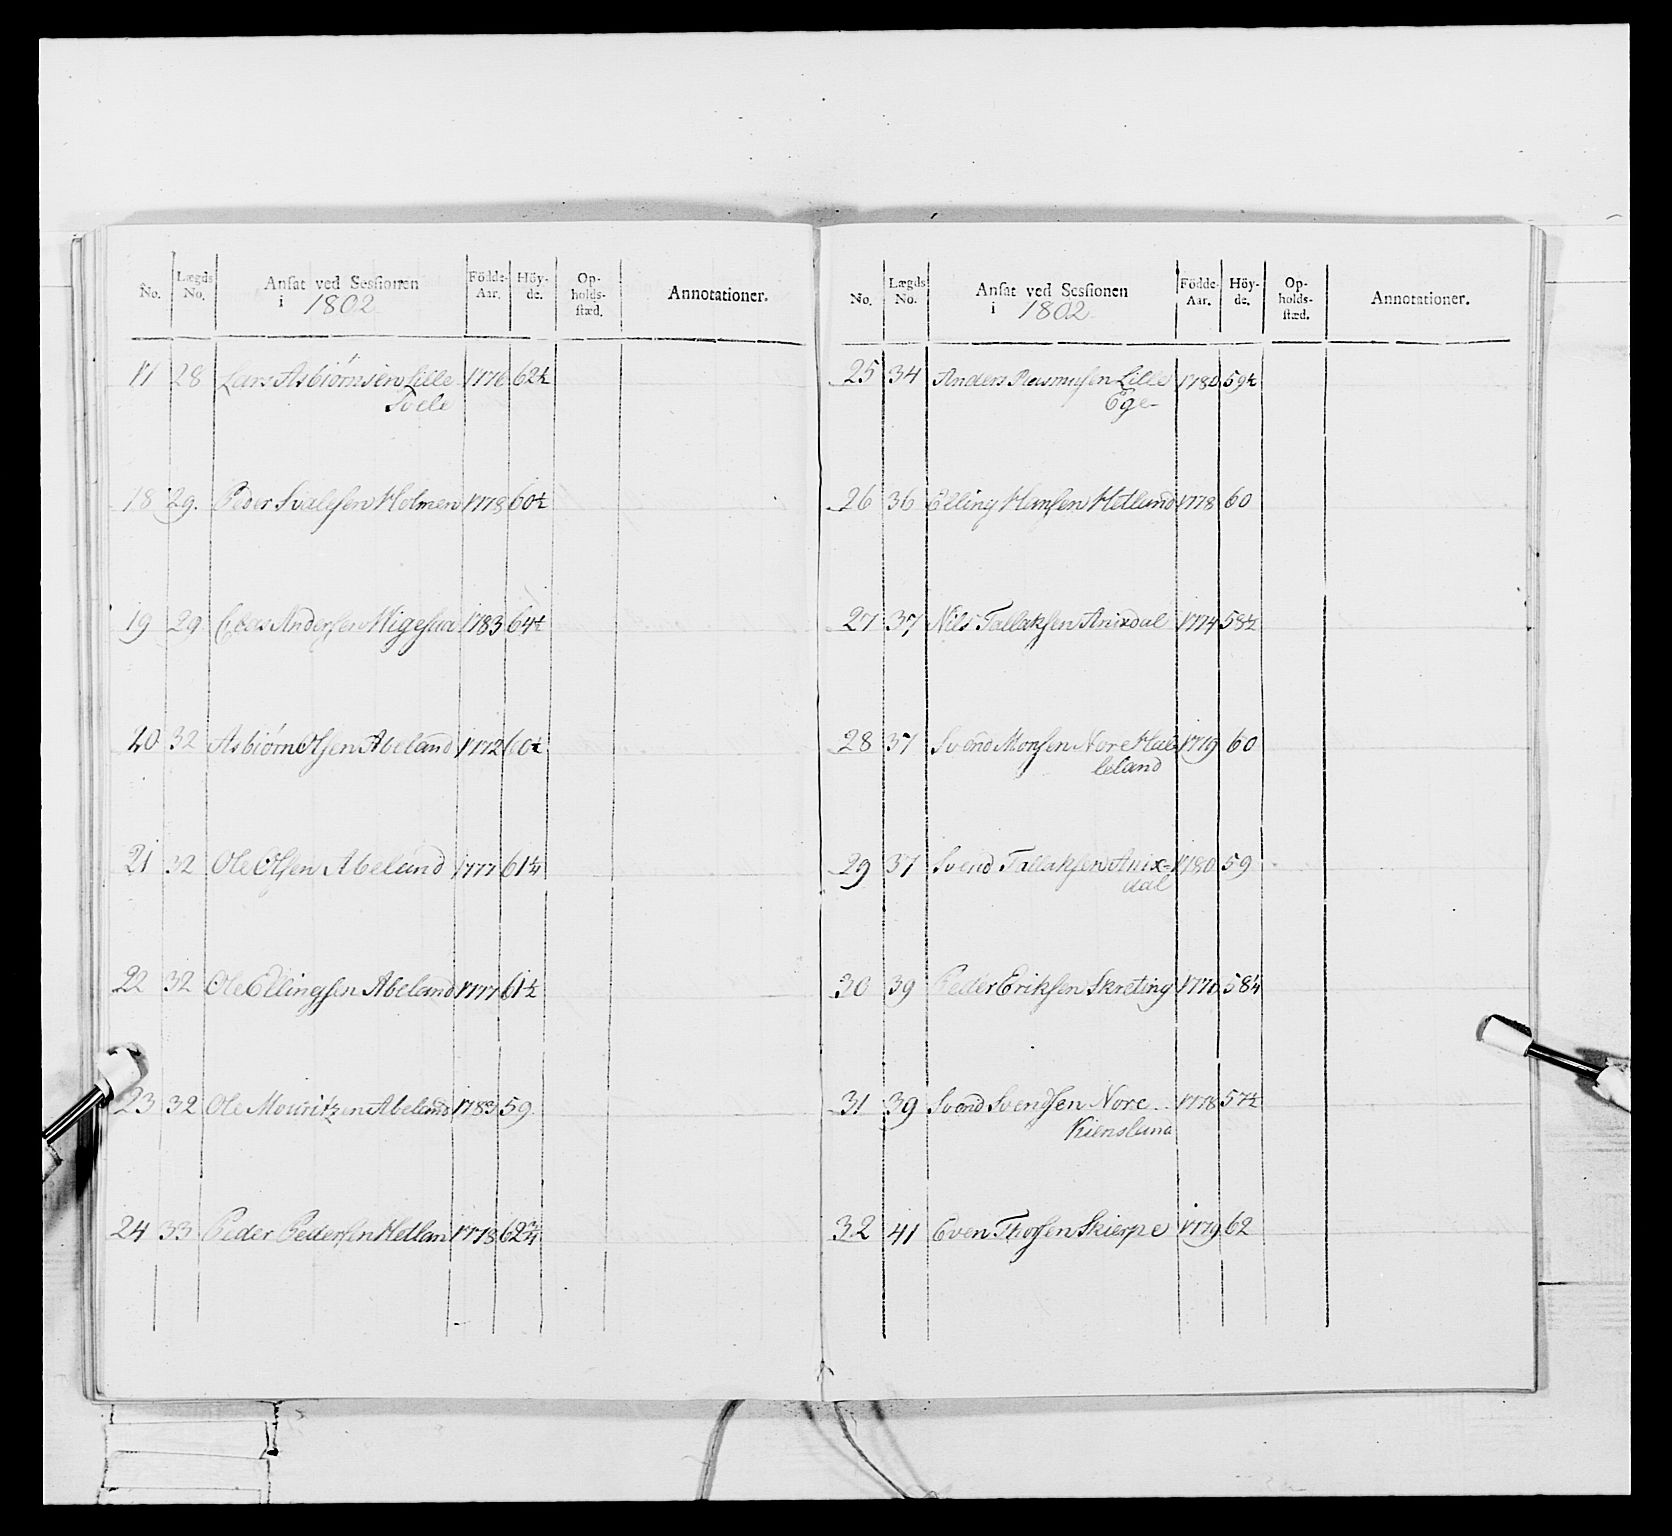 No. Lægds No. Ansat ved Sessionen i 1802 Födde-Aar. Höy-de. Op-holds-stæd. Annotationer.
17 28 Lars Asbiørnsen Lille 1776 62½
Tvele
18 29. Peder Svalesen Holmen 1778 60½
19 29 Andersen 1783 64½
20 32 Asbiørn Olsen Abeland 1772 60½
21 32 Ole Olsen Abeland 1777 61¼
22 32 Ole Ellingsen Abeland 1777 61½
23 32 Ole Mouritzen Abeland 1783 59
24 33 Peder Pedersen Hetlan 1778 62¾
No. Lægds No. Ansat ved Sessionen i 1802 Födde-Aar. Höy-de. Op-holds-stæd. Annotationer.
25 34 Anders Rasmusen Lille 1780 59½
Ege
26 36 Elling Hansen Hetland 1778 60
27 37 Nils Tallaksen Anixdal 1774 58½
28 37 Svend Monsen Nore Hæl- 1779 60
leland
29 37 Svend Tallaksen Anix- 1780 59
dal
30 39 Peder Eriksen Skreting 1770 58¼
31 39 Svend Svendsen Nore 1778 57½
32 41 Even Skierpe 1779 62